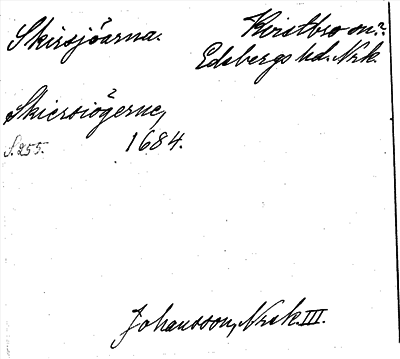 Skirsjöarna.
Kvistbro sn?
Edsbergs hd. Nrk.
Skiersiögerne,
S. 255. 1684.
Johansson, Nrk. III.